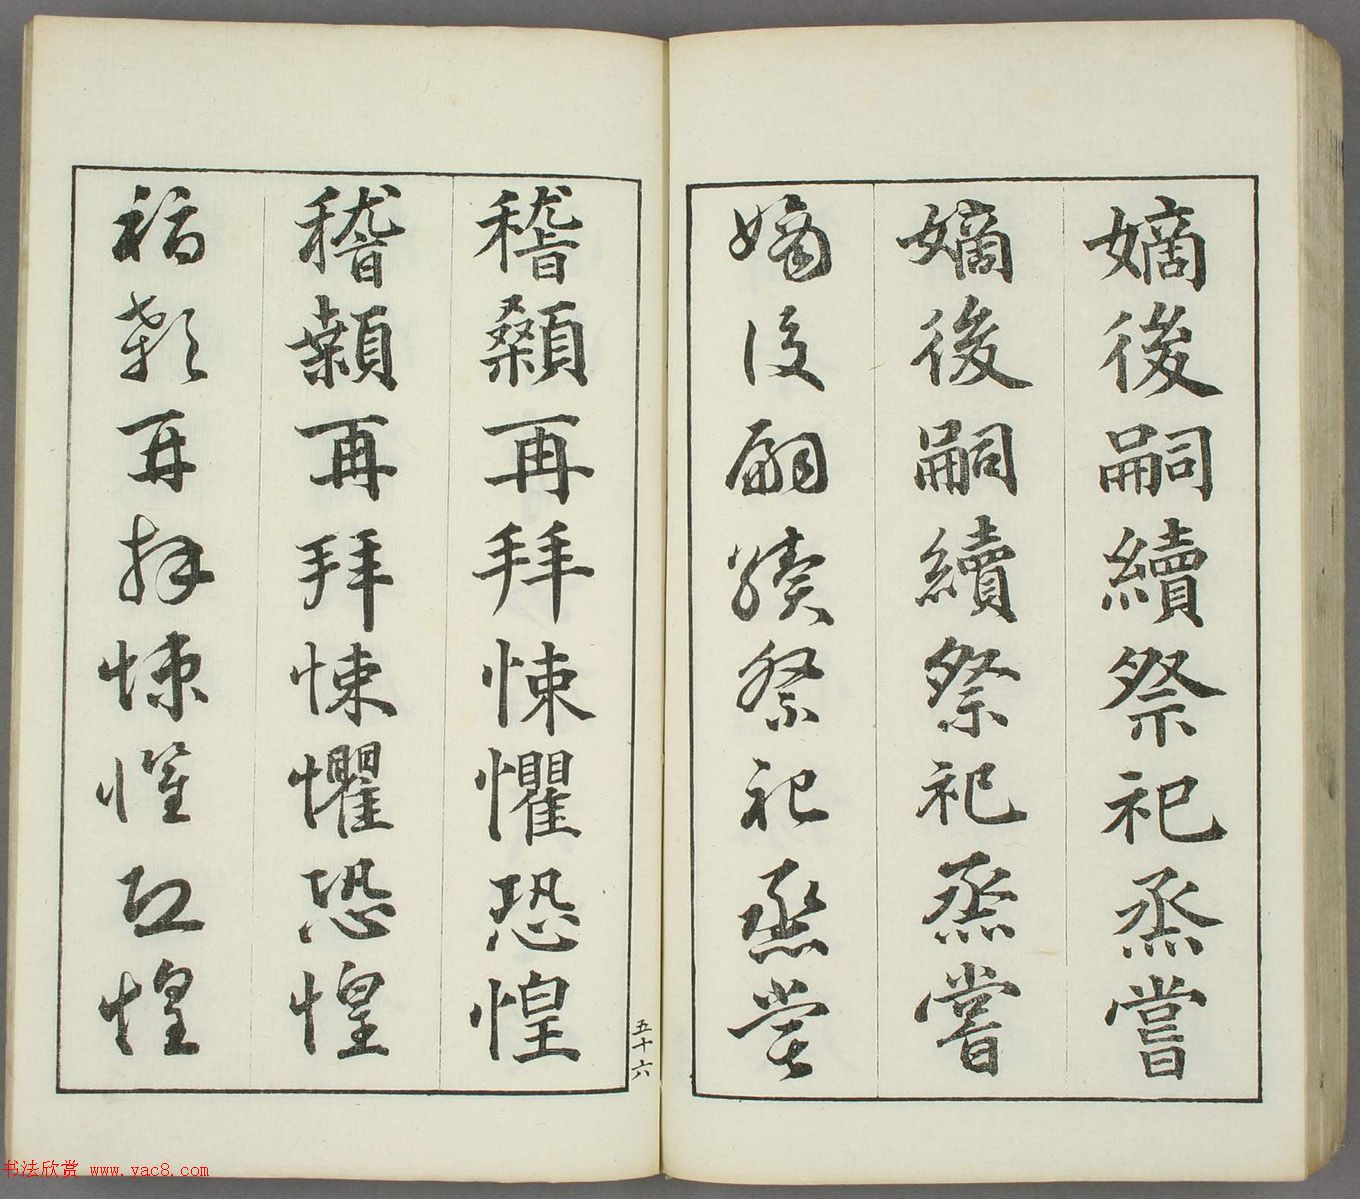 嫡後嗣續祭祀烝嘗
嫡後嗣續祭祀烝嘗
嫡後嗣續祭祀烝嘗
五十六
稽顙再拜悚懼恐惶
稽顙再拜悚懼恐惶
稽顙再拜悚懼恐惶
书法欣赏 www.yac8.com